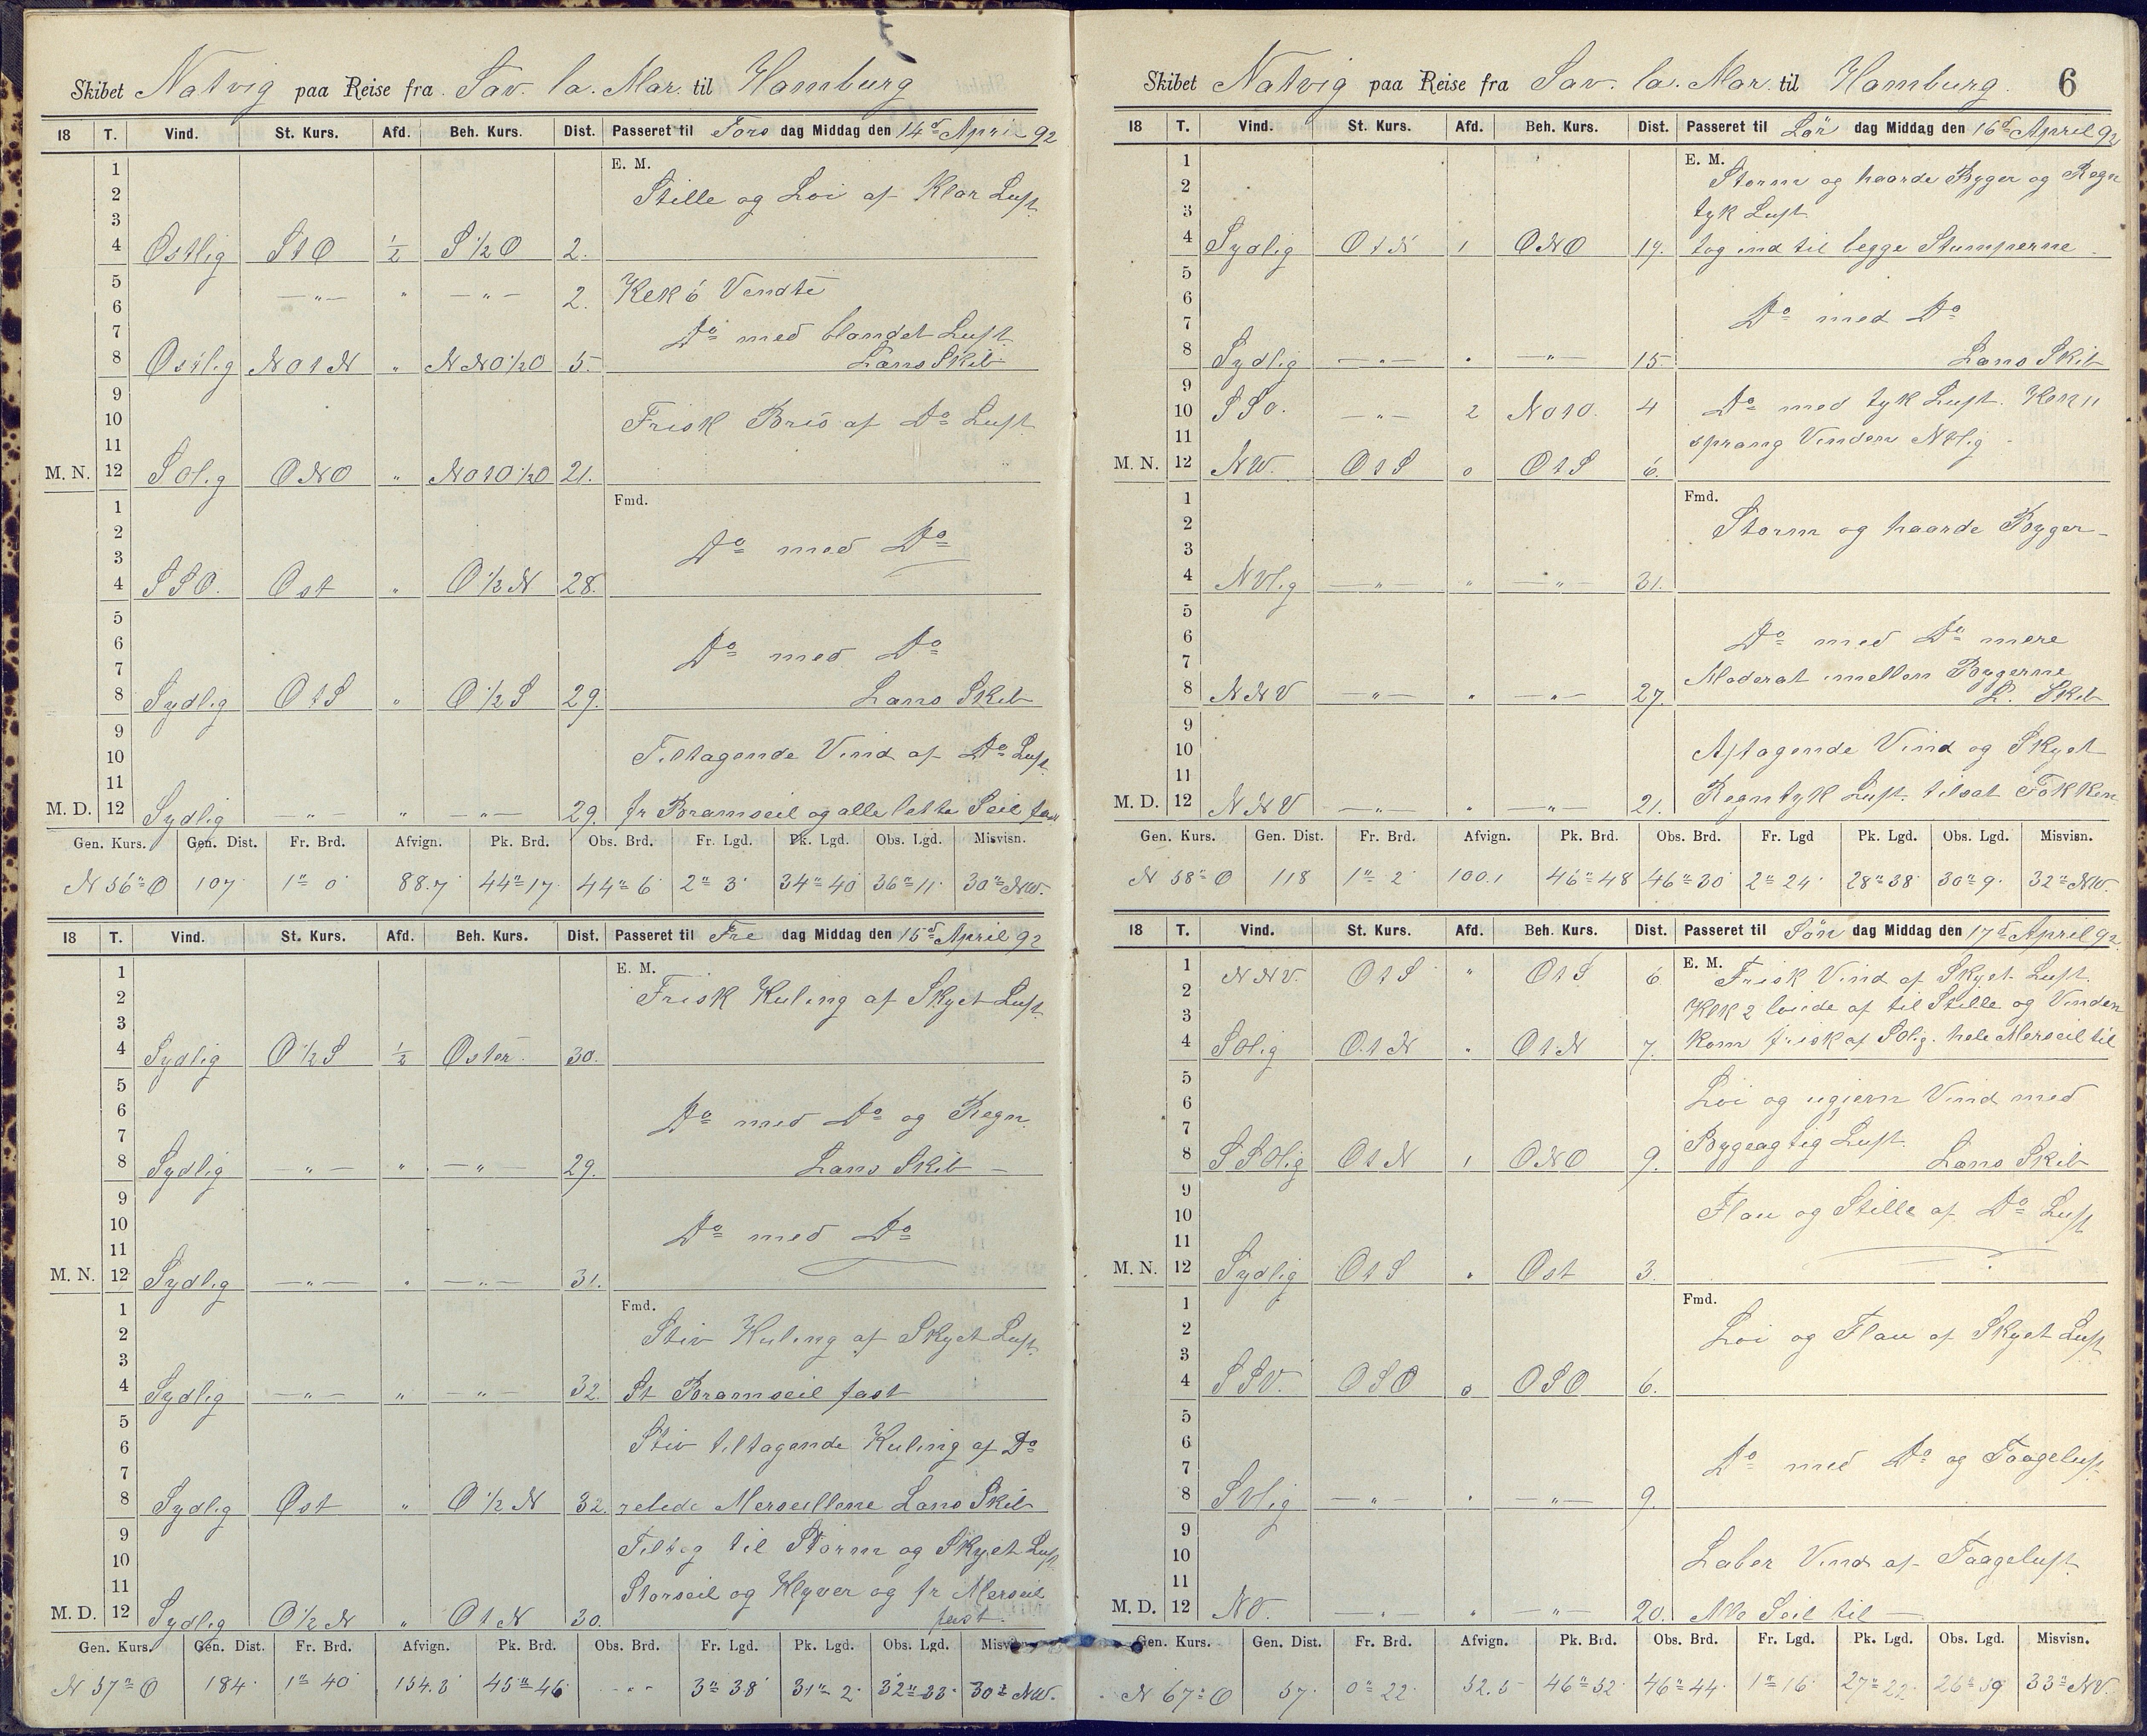 Skibet Natvig paa Reise fra Sav. la. Mar. til Hamburg
18 T. Vind. St. Kurs. Afd. Beh. Kurs. Dist. Passeret til Tors dag Middag den 14d April 92
E. M.
1
2 Stille og Löi af Klar Luft
3
4 Ostlig StO 1/2 S 1/2 O 2.
5
6 —"— " —"— 2. Klk 6 Vendte
7 Do med blandet Luft
8 Ostlig NOtN " NNO 1/2 O 5. Lans Skib
9
10 Frisk Bris af Do Luft
11
M. N. 12 SOlig ONO " NOtO 1/2 O 21.
Fmd.
1
2 Do med Do
3
4 SSO. Ost " O 1/2 N 28.
5
6 Do med Do
7
8 Sydlig OtS " O 1/2 S 29. Lans Skib
9
10 Tiltagende Vind af Do Luft
11
M. D. 12 Sydlig —"— " —"— 29. fr Bramseil og alle lette Seil fast
Gen. Kurs. Gen. Dist. Fr. Brd. Afvign. Pk. Brd. Obs. Brd. Fr. Lgd. Pk. Lgd. Obs. Lgd. Misvisn.
N 56° O 107 1° 0' 88.7 44° 17' 44° 6' 2° 3' 34° 40' 36° 11' 30° NW.
18 T. Vind. St. Kurs. Afd. Beh. Kurs. Dist. Passeret til Fre dag Middag den 15d April 92
E. M.
1
2 Frisk Kuling af Skyet Luft
3
4 Sydlig O 1/2 S 1/2 Osten. 30.
5
6 Do med Do og Regn
7
8 Sydlig —"— " —"— 29. Lans Skib —
9
10 Do med Do
11
M. N. 12 Sydlig —"— " —"— 31.
Fmd.
1
2 Stiv Kuling af Skyet Luft
3
4 Sydlig —"— " —"— 32. St Bramseil fast
5
6 Stiv tiltagende Kuling af Do
7
8 Sydlig Ost " O 1/2 N 32. rebede Merseillene Lans Skib
9
10 Tiltog til Storm og Skyet Luft
11 Storseil og Klyver og fr Merseil
M. D. 12 Sydlig O 1/2 N " OtN 30. fast.
Gen. Kurs. Gen. Dist. Fr. Brd. Afvign. Pk. Brd. Obs. Brd. Fr. Lgd. Pk. Lgd. Obs. Lgd. Misvisn.
N 57° O 184 1° 40' 154.3 45° 46' - " - 3° 38' 31° 2' 32° 33' 30° NW.
Skibet Natvig paa Reise fra Sav. la. Mar. til Hamburg. 6
18 T. Vind. St. Kurs. Afd. Beh. Kurs. Dist. Passeret til Lör dag Middag den 16d April 92
E. M.
1 Storm og haarde Byger og Regn
2
3 tyk Luft
4 Sydlig OtN 1 ONO 19. tog ind til begge Stumperne
5
6 Do med Do
7
8 Sydlig —"— " —"— 15. Lans Skib
9
10 SSO. —"— 2 NOtO. 4 Do med tyk Luft. Klk 11
11 sprang Vinden NVlig
M. N. 12 NW. OtS 0 OtS 6.
Fmd.
1
2 Storm og haarde Byger —
3
4 NVlig —"— " —"— 31.
5
6 Do med Do mere
7 Moderat mellem Bygerne
8 NNV —"— " —"— 27. L. Skib
9
10 Aftagende Vind og Skyet
11
M. D. 12 NNV —"— " —"— 21. Regntyk Luft. tilsat Fokken
Gen. Kurs. Gen. Dist. Fr. Brd. Afvign. Pk. Brd. Obs. Brd. Fr. Lgd Pk. Lgd. Obs. Lgd. Misvisn.
N 58° O 118 1° 2' 100.1 46° 48' 46° 30' 2° 24' 28° 38' 30° 9' 32° NW.
18 T. Vind. St. Kurs. Afd. Beh. Kurs. Dist. Passeret til Sön dag Middag den 17d April 92.
E. M.
1 NNV. OtS " OtS 6 Frisk Vind af Skyet Luft.
2 Klk 2 löiede af til Stille og Vinden
3
4 SOlig OtN " OtN 7. kom frisk af SOlig. hele Merseil til
5
6 Löi og ugiern Vind med
7
8 SSOlig OtN 1 ONO 9. Bygeagtig Luft. Lans Skib
9
10 Flau og Stille af Do Luft
11
M. N. 12 Sydlig OtS " Ost 3.
Fmd.
1
2 Löi og Flau af Skyet Luft
3
4 SSV. OSO 0 OSO 6.
5
6
7 Do med Do og Taageluft
8 SVlig —"— " —"— 9.
9
10 Laber Vind af Taageluft
11
M. D. 12 NV. —"— " —"— 20. Alle Seil til —
Gen. Kurs. Gen. Dist. Fr. Brd. Afvign. Pk. Brd. Obs. Brd. Fr. Lgd. Pk. Lgd. Obs. Lgd. Misvisn.
N 67° O 57 0° 22' 52.5 46° 52' 46° 44' 1° 16' 27° 22' 26° 59' 33° NV.